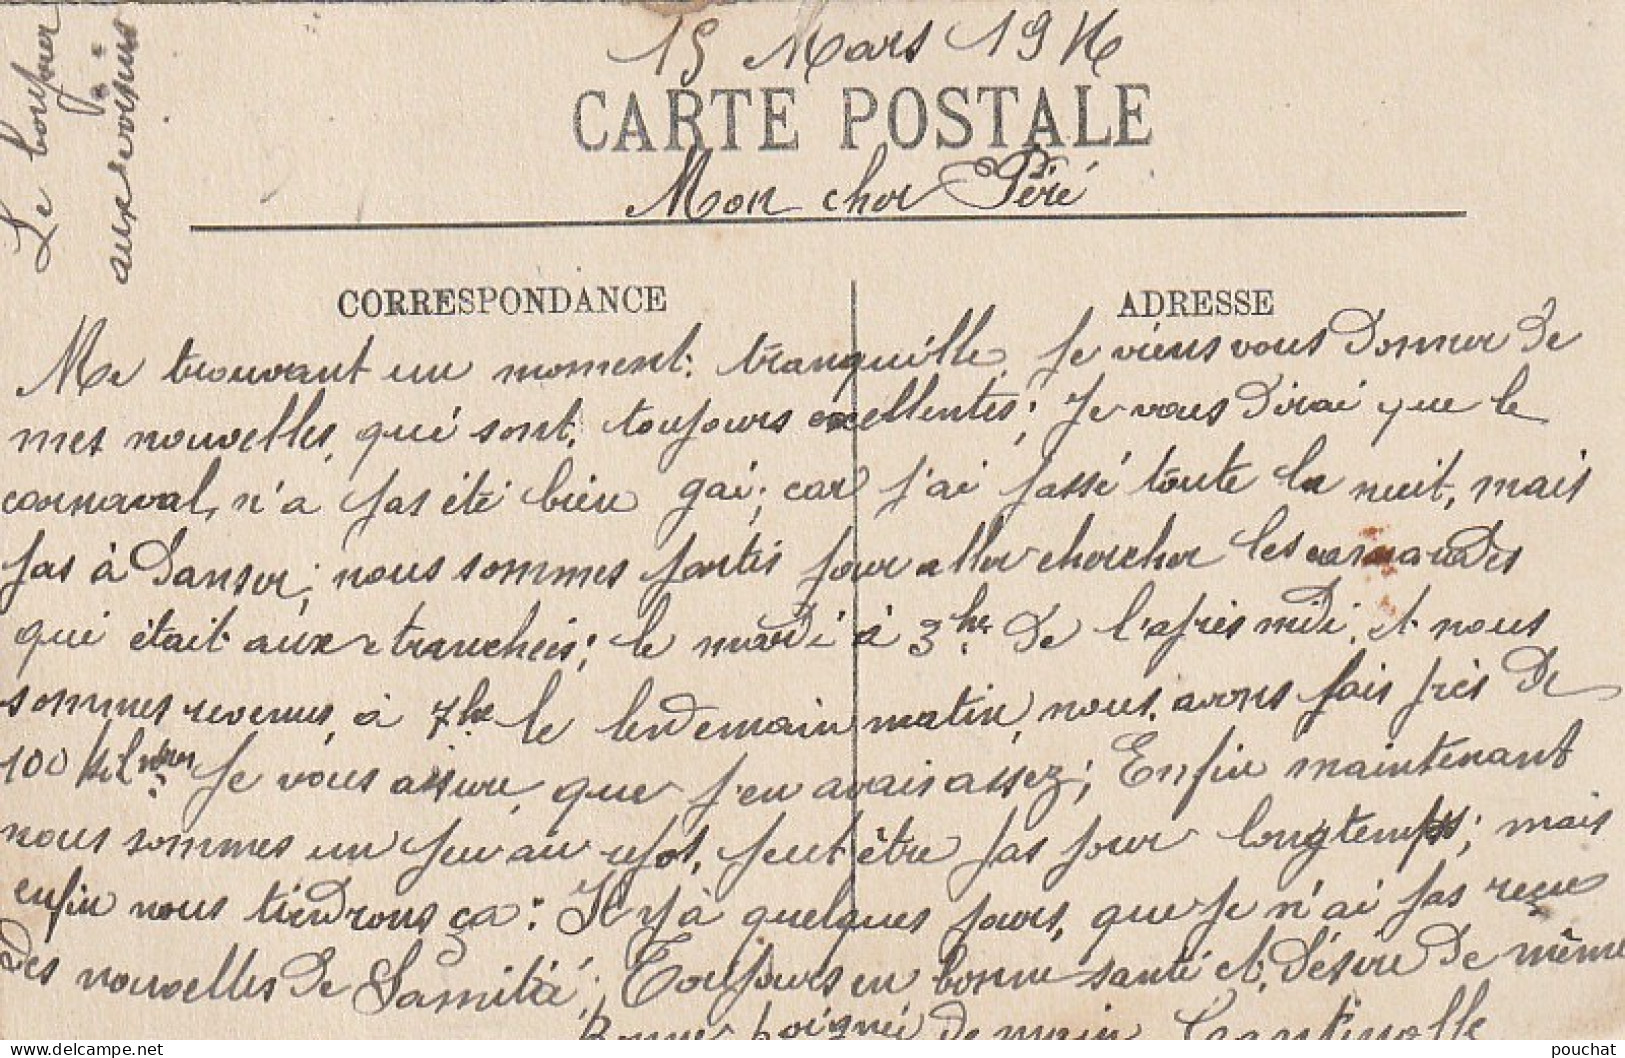 15 Mars 19
CARTE POSTALE
Mon cher Péré
Le
aux voisins
CORRESPONDANCE
ADRESSE
Me trouvant un moment. tranquille, Je viens vous donner de
mes nouvelles, qui sont, toujours excellentes; Je vous dirai que le
carnaval, n'a pas été bien gai; car j'ai passé toute la nuit, mais
pas à danser; nous sommes partis pour aller chercher les camarades
qui était aux tranchéis; le mardi à 3hr de l'après midi, et nous
sommes revenus, à 7hr le lendemain matin, nous avons fais près de
100 Je vous assure, que j'en avais assez; Enfin maintenant
nous sommes un peu au repos, peut être pas pour longtemps; mais
enfin nous tiendrons ça: Il y à quelques jours, que Je n'ai pas reçue
des nouvelles de Toujours en bonne santé et désire de même
Bonne poigneé de main
pouchat